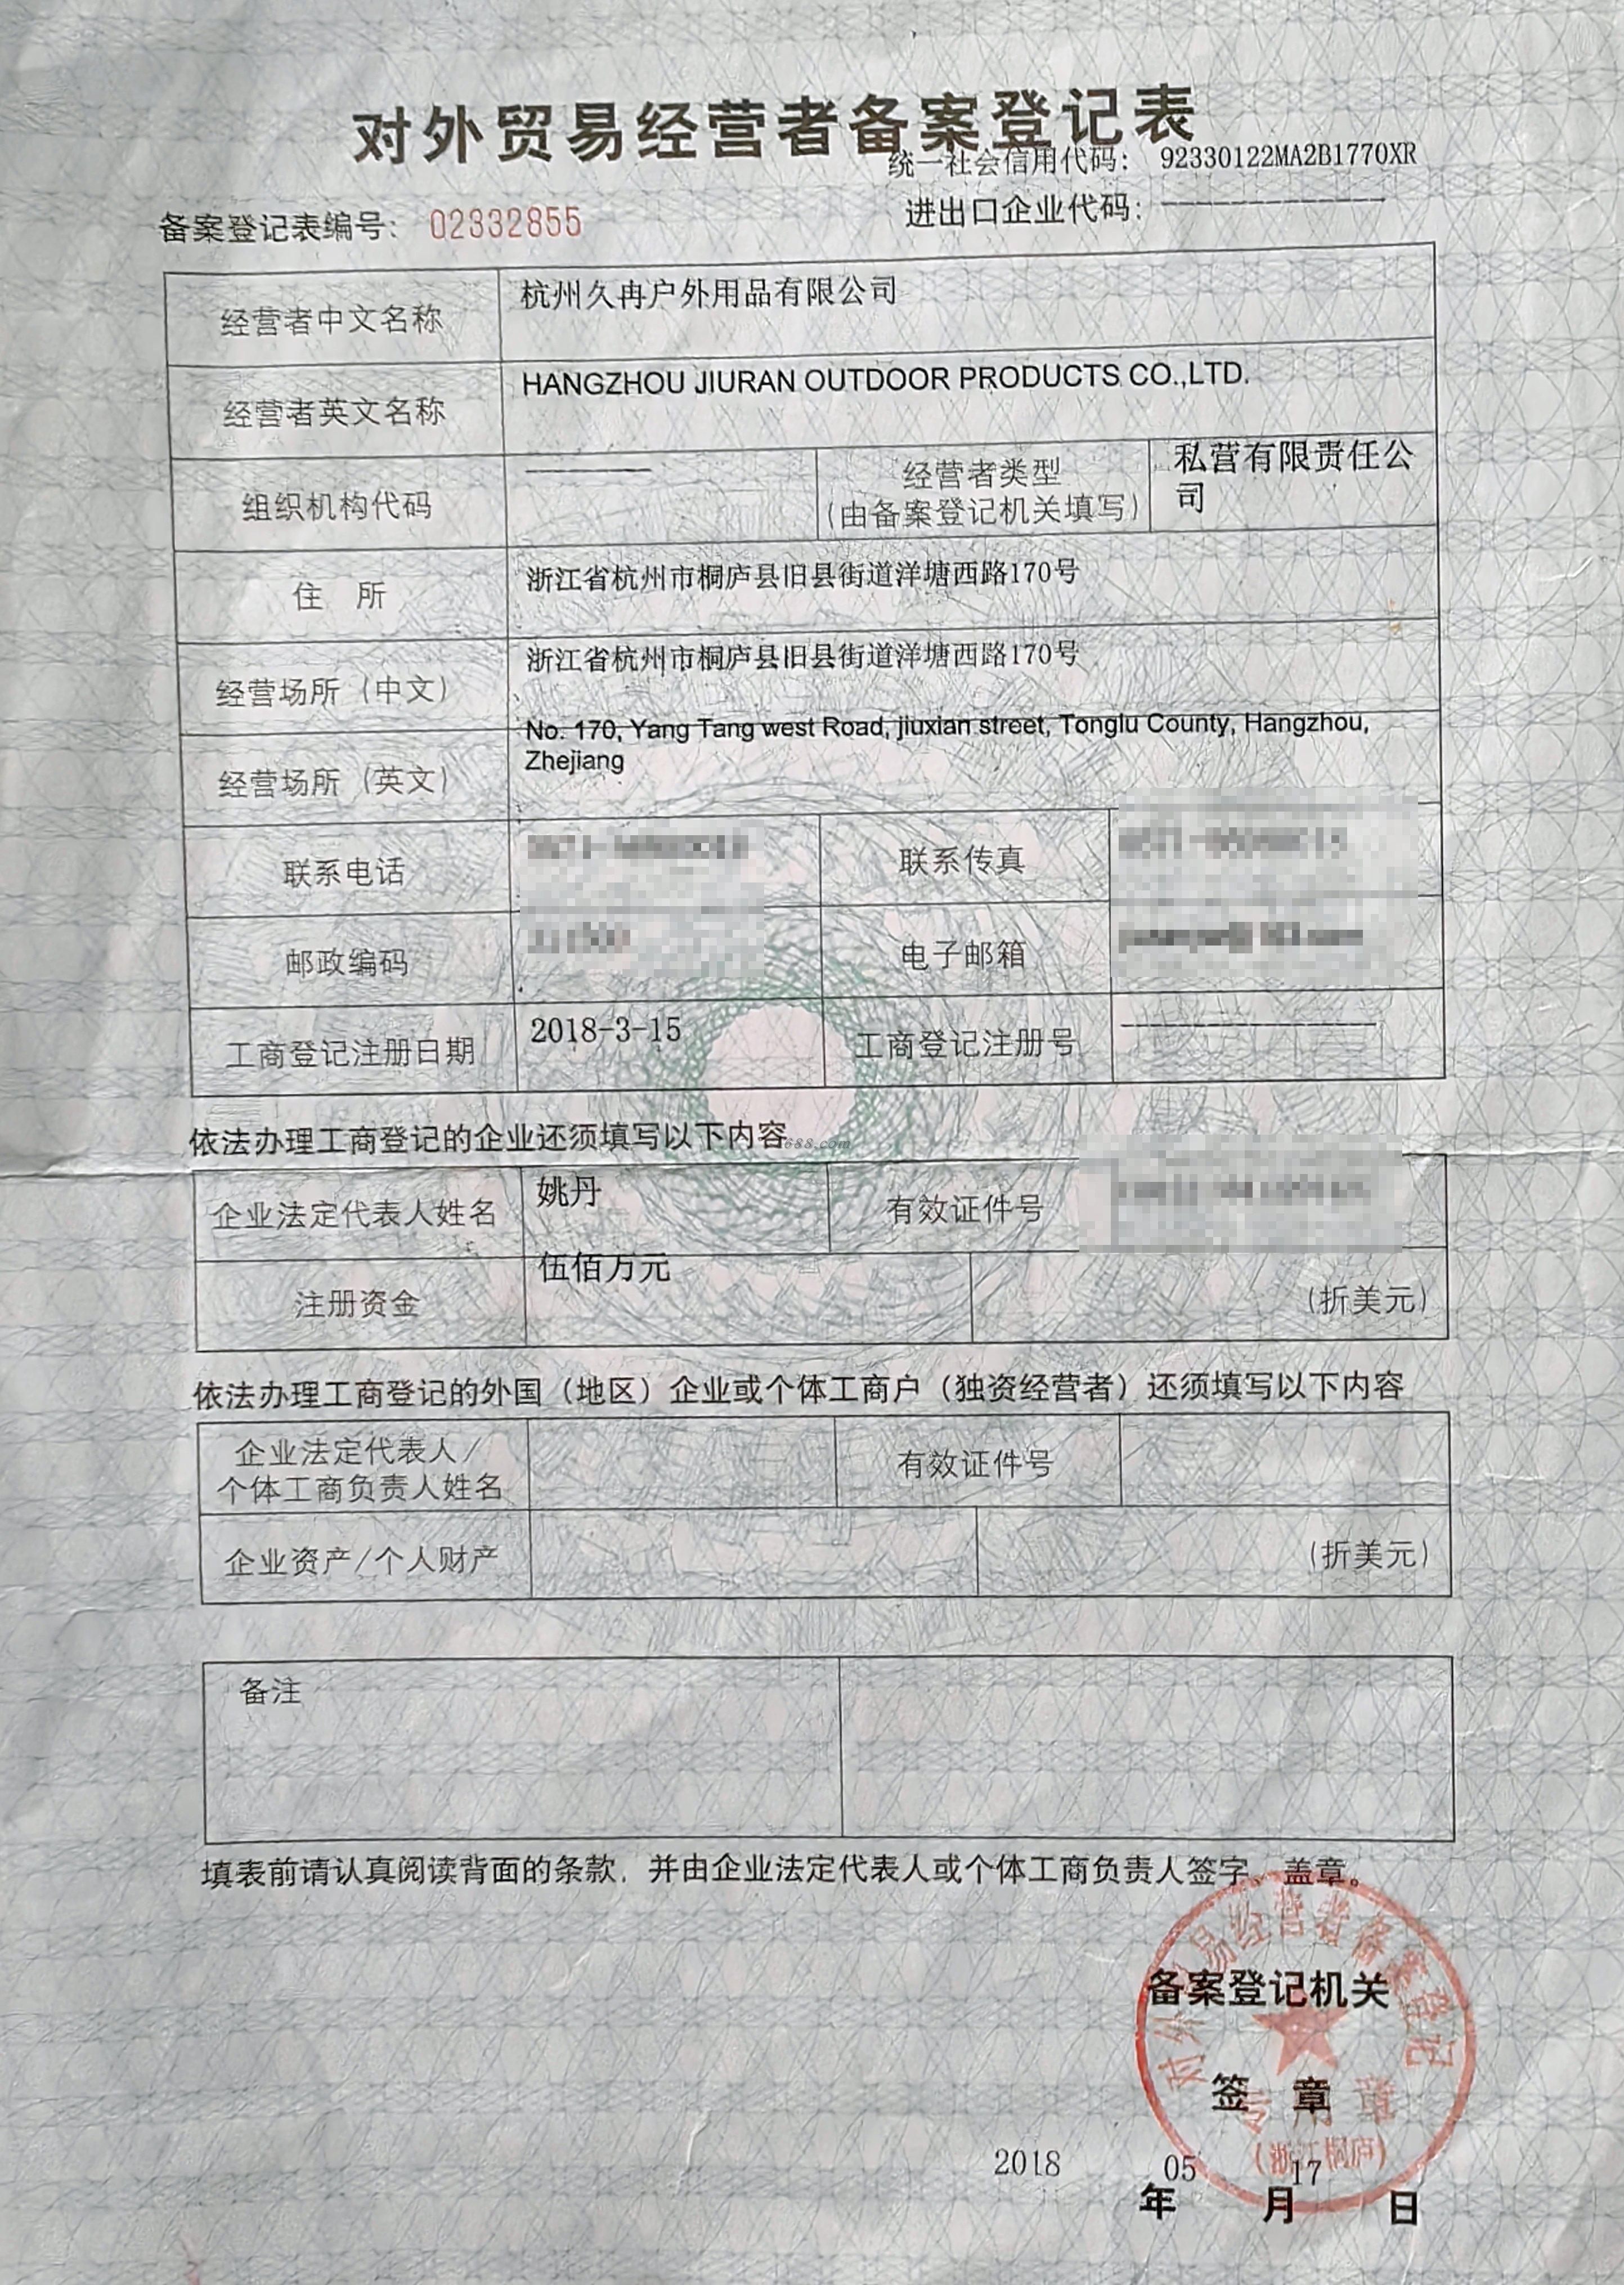 对外贸易经营者备案登记表
统一社会信用代码： 92330122MA2B1770XR
备案登记表编号： 02332855
进出口企业代码：-------------
经营者中文名称 杭州久冉户外用品有限公司
经营者英文名称 HANGZHOU JIURAN OUTDOOR PRODUCTS CO.,LTD.
组织机构代码 经营者类型 私营有限责任公
(由备案登记机关填写) 司
住 所 浙江省杭州市桐庐县旧县街道洋塘西路170号
经营场所（中文） 浙江省杭州市桐庐县旧县街道洋塘西路170号
经营场所（英文） No. 170, Yang Tang west Road, jiuxian street, Tonglu County, Hangzhou,
Zhejiang
联系电话 联系传真
邮政编码 电子邮箱
工商登记注册日期 2018-3-15 工商登记注册号
依法办理工商登记的企业还须填写以下内容
688.com
企业法定代表人姓名 姚丹 有效证件号
注册资金 伍佰万元 (折美元)
依法办理工商登记的外国（地区）企业或个体工商户（独资经营者）还须填写以下内容
企业法定代表人/
个体工商负责人姓名 有效证件号
企业资产/个人财产 (折美元)
备注
填表前请认真阅读背面的条款，并由企业法定代表人或个体工商负责人签字、盖章。
对外贸易经营者备案登记
备案登记机关
签 章
专用章
(浙江桐庐)
2018 05 17
年 月 日